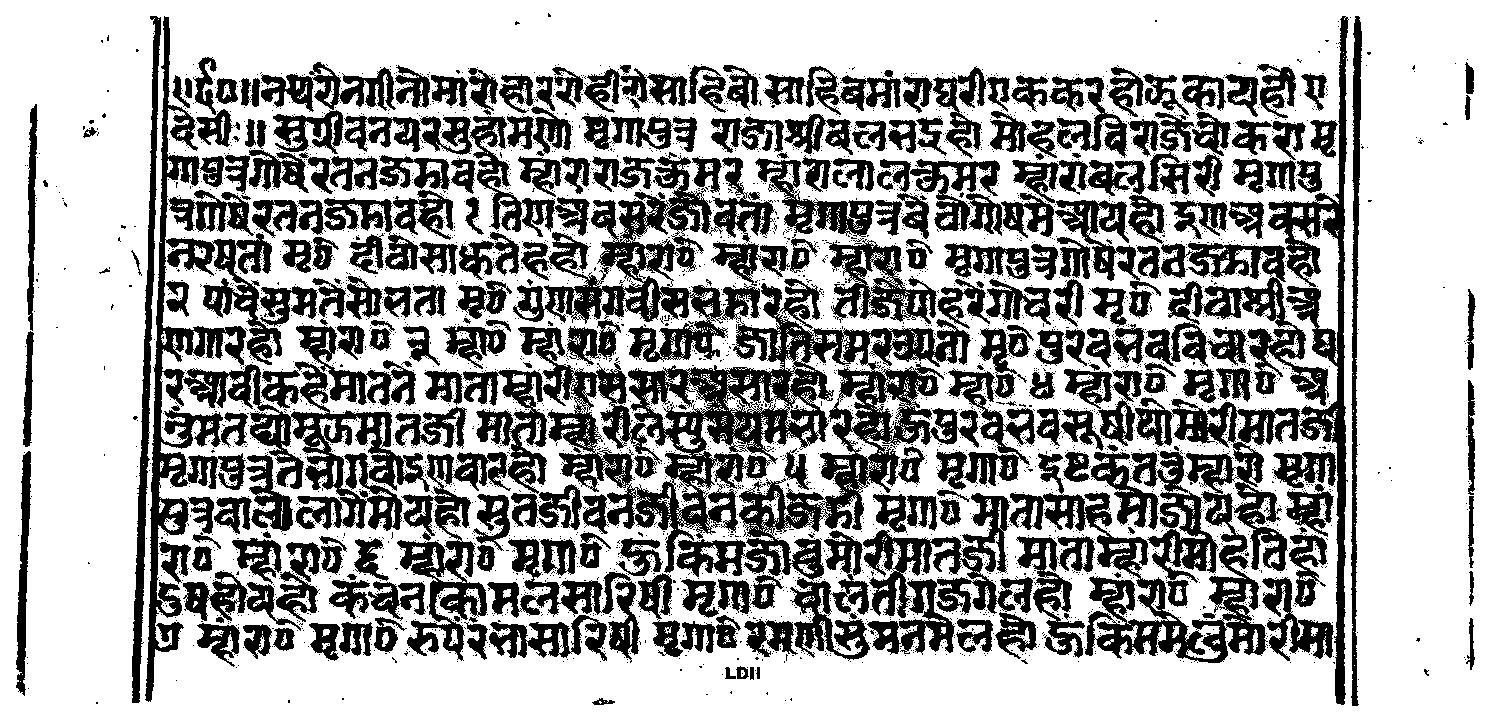 ॥र्द०॥नथरीनागीनोमारोहाररोहीरोसाहिबो साहिबमांराघरीएककरहोऊकायहीए
देसीः॥ सुग्रीवनयरसुहामणो मृगापुत्र राजाश्रीबलनद्रहो मोहलविराजैवोकरा मृ
गापुत्रगोषैरतनजमावहो म्हाराराजकुमर म्हांरालालकुमर म्हांरांबलसिरी मृगापु
त्रगोषैरतनजमावहो १ तिणअवसरैजोवतां मृगापुत्रबैवोगोषमेआयहो इणअवसरै
नरषतां मृ० दीवोसाधुतेहहो म्हारा० म्हांरा० म्हारा० मृगापुत्रगोषैरतनजमावहो
२ पांचेसुमतेसोनता मृ० गुणसगवीसनमारहो तीजैपोहरगोचरी मृ० दीवाश्रीअ
णगारहो म्हांरा० ३ म्हां० म्हारा० मृगापु० जातिसमरणपतां मृ० पुरवनवविचारहो घ
रआवीकहैमातनै माताम्हांरीएससारअसारहो म्हांरा० म्हां० ४ म्हारा० मृगा० अ
नुमतद्योमूऊमातजी मातांम्हारीलेस्युसंयमनारहो ऊपुरवनवसूषीयोमांरीमातजी
मृगापुत्रतेसोगवोइणवारहो म्हारा० म्हारा० ५ म्हारा० मृगा० इष्टकंततुम्हारो मृगा
पुत्रवालोलागेमोयहो सुतजीवनजीवनकीजमी मृगा० मातासाहमोजोयहो म्हा
रा० म्हांरा० ६ म्हांरा० मृगा० ऊकिमजोवुमोरीमातजी माताम्हारीमोहतिहां
डुषहोयहो कंचनकोमलसारिषी मृगा० चालतीगजगेलहो म्हारा० म्हारा०
७ म्हांरा० मृगा० रुपेरंनासारिषी मृगा० रमणीसुमनमेलहो ऊकिसमेलुमोरीमा
LDII